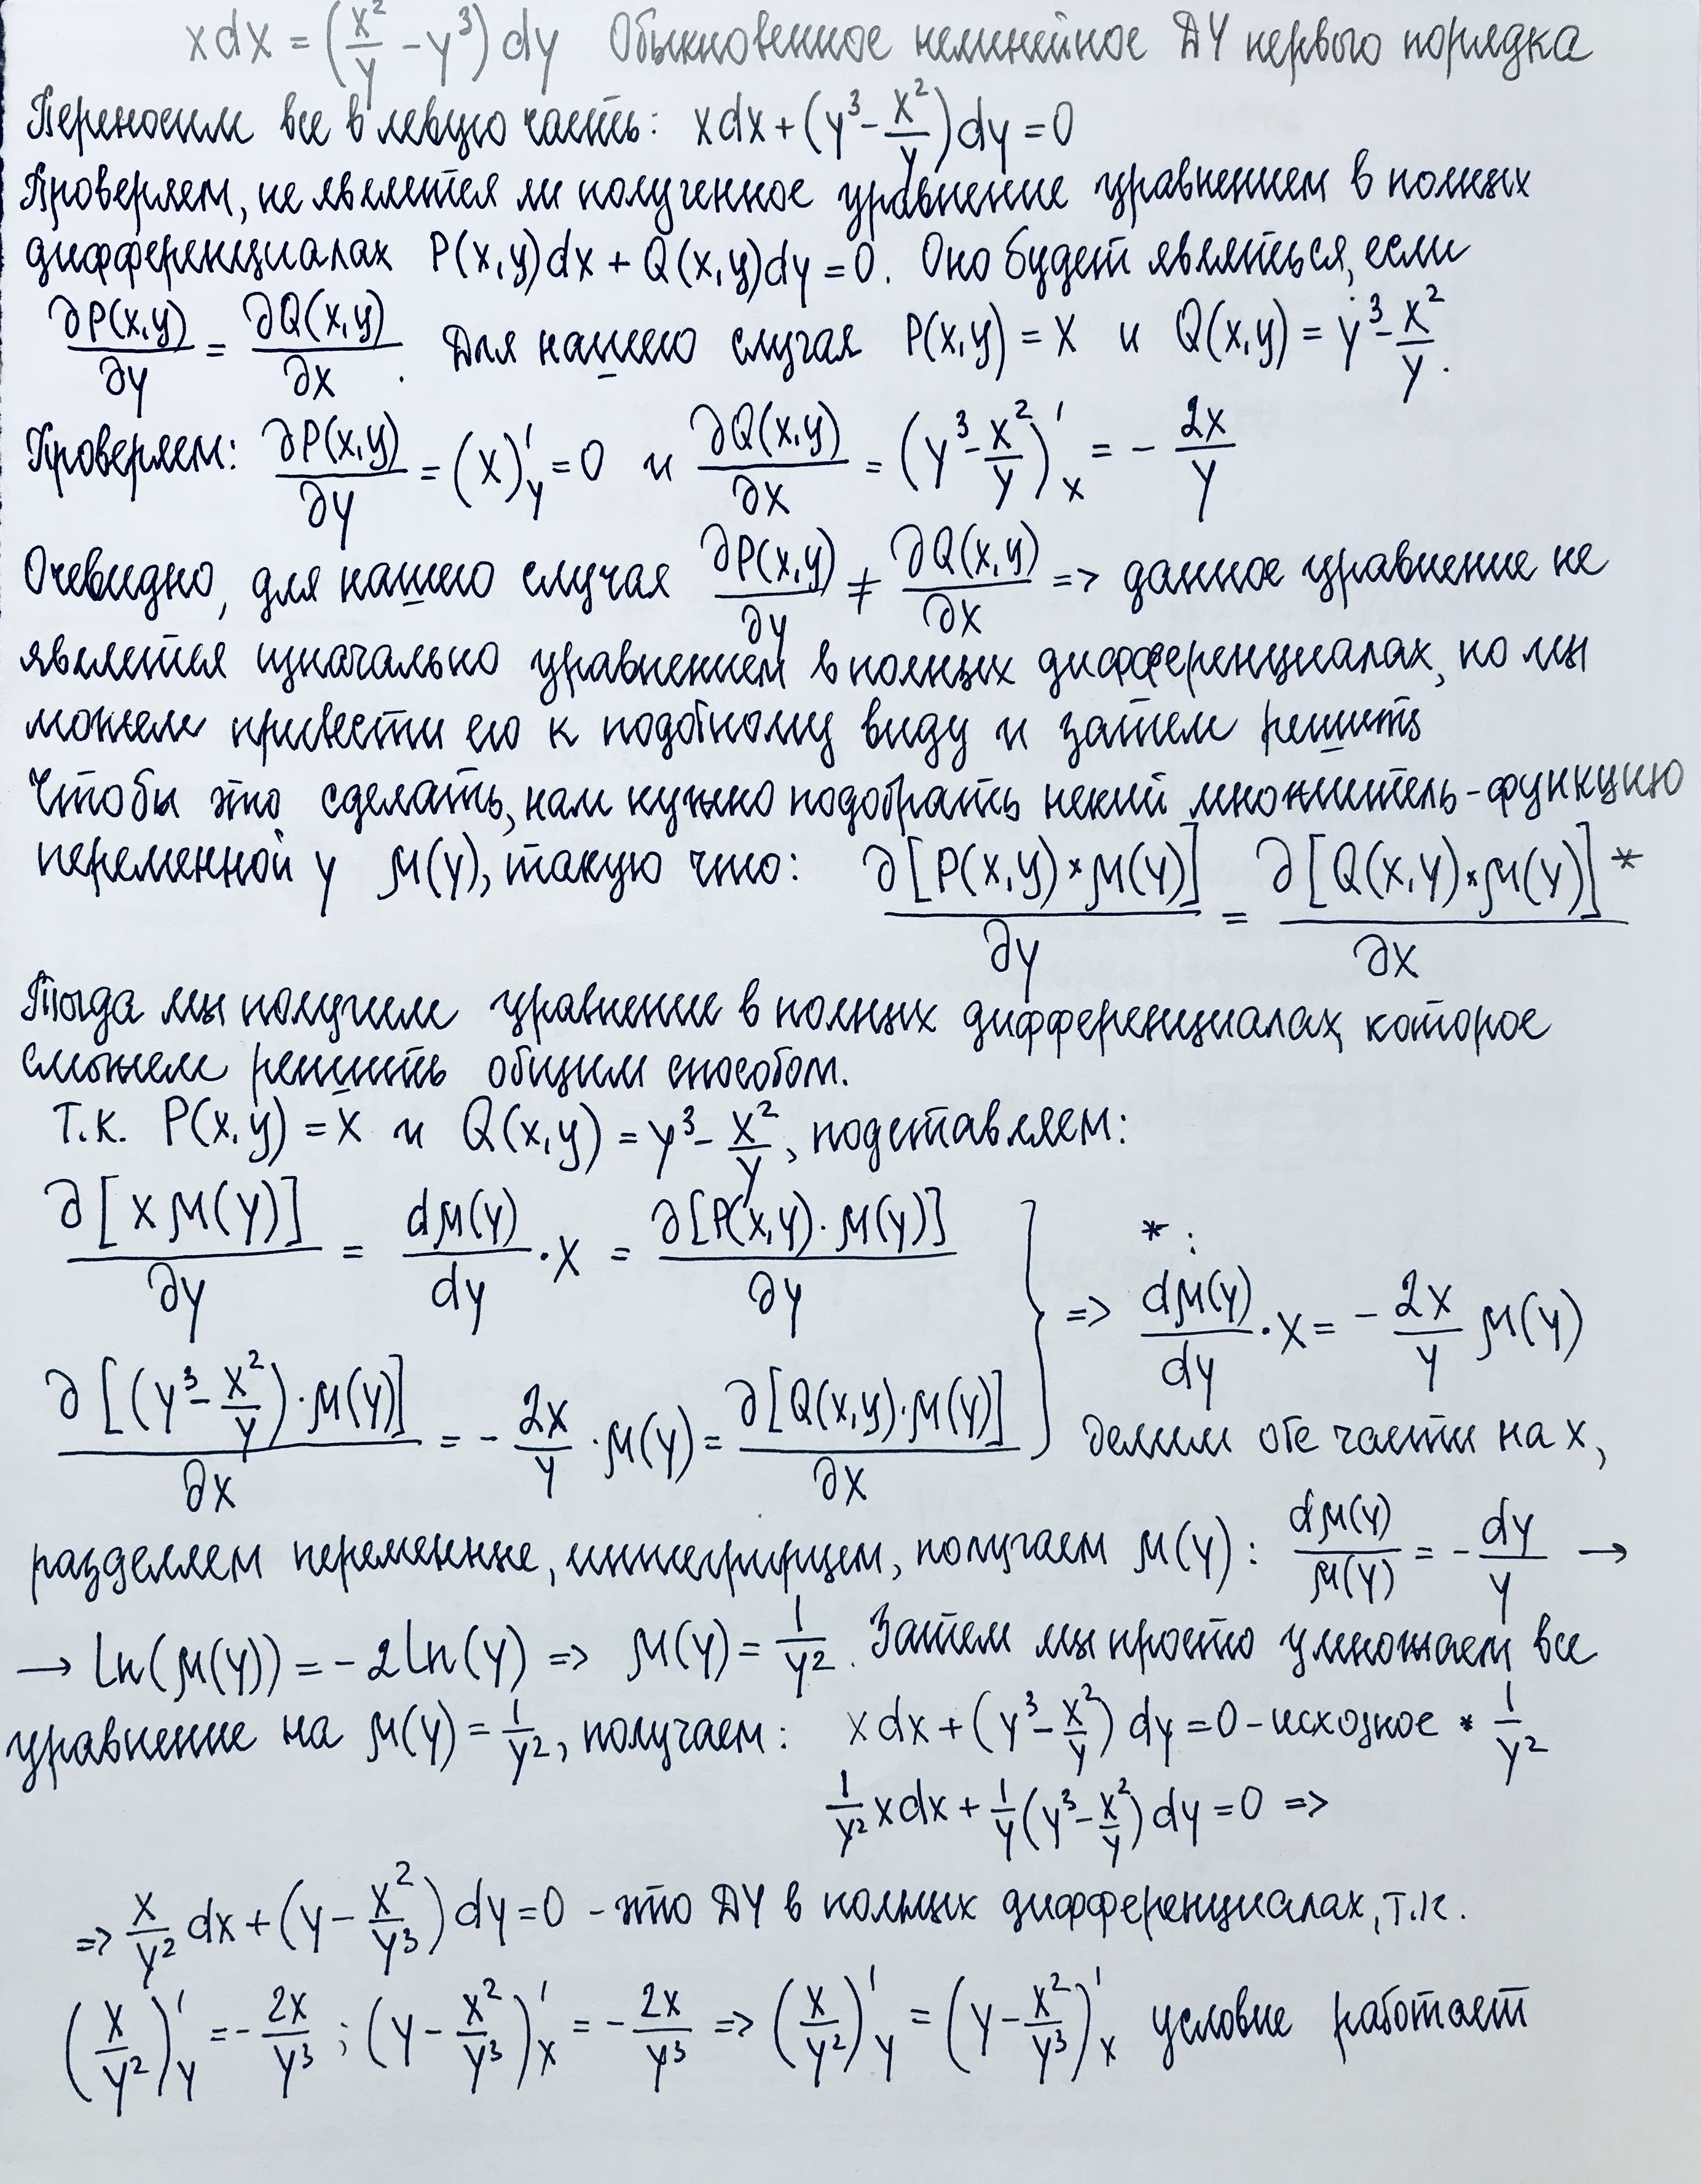 xdx = (x²/y - y³) dy Обыкновенное нелинейное ДУ первого порядка
Переносим все в левую часть: xdx + (y³ - x²/y) dy = 0
Проверяем, не является ли полученное уравнение уравнением в полных
дифференциалах P(x,y)dx + Q(x,y)dy = 0. Оно будет являться, если
∂P(x,y)/∂y = ∂Q(x,y)/∂x. Для нашего случая P(x,y) = x и Q(x,y) = y³ - x²/y.
Проверяем: ∂P(x,y)/∂y = (x)'_y = 0 и ∂Q(x,y)/∂x = (y³ - x²/y)'_x = - 2x/y
Очевидно, для нашего случая ∂P(x,y)/∂y ≠ ∂Q(x,y)/∂x => данное уравнение не
является изначально уравнением в полных дифференциалах, но мы
можем привести его к подобному виду и затем решить
Чтобы это сделать, нам нужно подобрать некий множитель-функцию
переменной y μ(y), такую что: ∂[P(x,y)×μ(y)]/∂y = ∂[Q(x,y)×μ(y)]/∂x *
Тогда мы получим уравнение в полных дифференциалах, которое
сможем решить общим способом.
Т.к. P(x,y) = x и Q(x,y) = y³ - x²/y, подставляем:
∂[xμ(y)]/∂y = dμ(y)/dy · x = ∂[P(x,y)·μ(y)]/∂y
∂[(y³ - x²/y)·μ(y)]/∂x = - 2x/y · μ(y) = ∂[Q(x,y)·μ(y)]/∂x } => * : dμ(y)/dy · x = - 2x/y μ(y)
Делим обе части на x,
разделяем переменные, интегрируем, получаем μ(y): dμ(y)/μ(y) = - dy/y →
→ ln(μ(y)) = - 2ln(y) => μ(y) = 1/y². Затем мы просто умножаем все
уравнение на μ(y) = 1/y², получаем: xdx + (y³ - x²/y) dy = 0 - исходное * 1/y²
1/y² xdx + 1/y (y³ - x²/y) dy = 0 =>
=> x/y² dx + (y - x²/y³) dy = 0 - это ДУ в полных дифференциалах, т.к.
(x/y²)'_y = - 2x/y³ ; (y - x²/y³)'_x = - 2x/y³ => (x/y²)'_y = (y - x²/y³)'_x условие работает